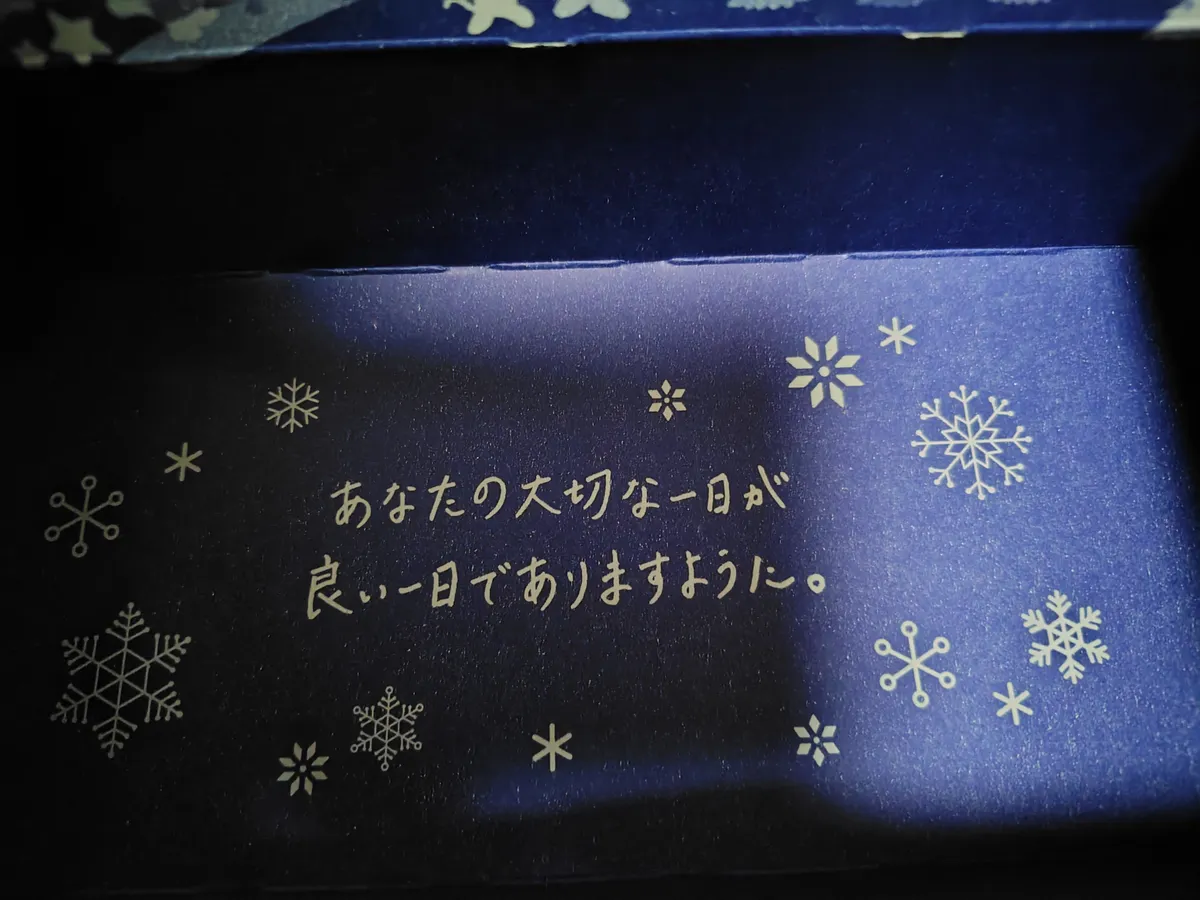 あなたの大切な一日が
良い一日でありますように。